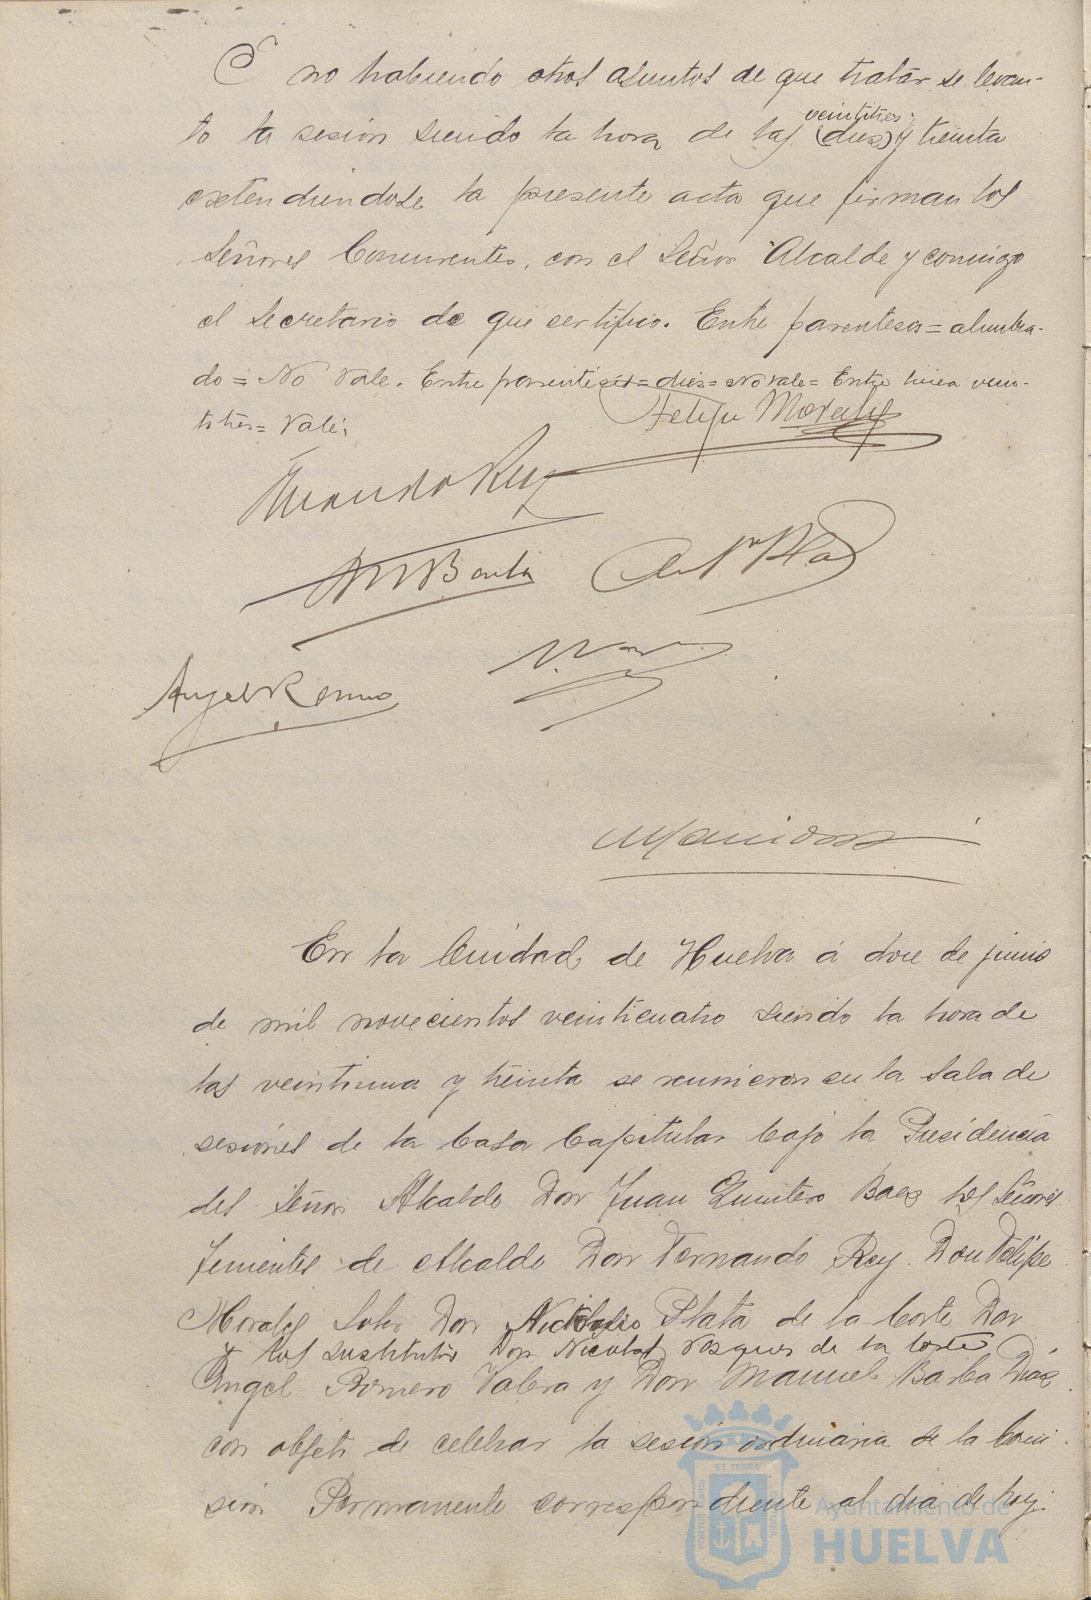 Y no habiendo otros asuntos de que tratar se levan-
to la sesión siendo la hora de las (dies) y treinta
veintitres
extendiendose la presente acta que firman los
Señores Concurrentes, con el Señor Alcalde y conmigo
el Secretario de que certifico. Entre parentesis = alumbra-
do = No Vale. Entre parentesis = dies = No vale = Entre linea vein-
titres = Vale.
Felipe Morales
Fernando Rey
M Barba
Angel Romero
En la Ciudad de Huelva á doce de junio
de mil novecientos veinticuatro siendo la hora de
las veintiuna y treinta se reunieron en la Sala de
sesiones de la Casa Capitular bajo la Presidencia
del Señor Alcalde Don Juan Quintero Baez los Señores
Tenientes de Alcalde Don Fernando Rey Don Felipe
Morales Don Plata de la Corte Don
y los sustitutos Don Nicolas Vasques de la Corte
Angel Romero Valera y Don Manuel Barba Dias
con objeto de celebrar la sesión ordinaria de la Comi
sión Permanente correspondiente al dia de hoy.
Ayuntamiento de
HUELVA